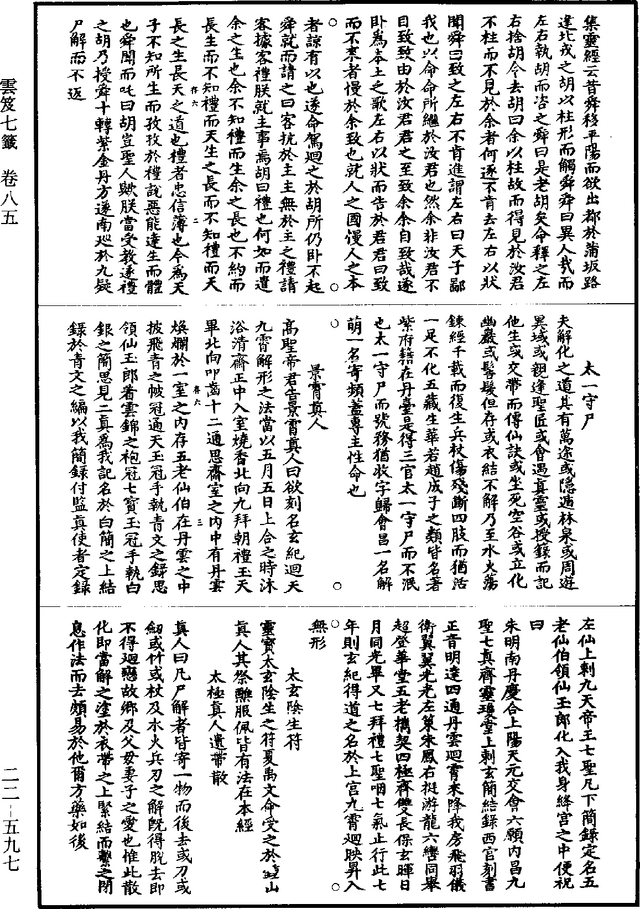 集靈經云昔舜移平陽而欲出都於蒲坂路
逢北戎之胡以柱形而觸舜舜曰異人哉而
左右執胡而咨之舜曰是老胡矣命釋之左
右捨胡令去胡曰余以柱故而得見於汝君
不柱而不見於余者何遂不肯去左右以狀
聞舜曰致之左右不肯進謂左右曰天子鄙
我也以命命所繼於汝君也然余非汝君不
自致致由於汝君君之至致余余自致哉遂
卧為本土之歌左右以狀而告於君君曰致
而不來者慢於余致也就人之國慢人之本
者諒有以也遂命駕迴之於胡所仍卧不起
舜就而請之曰客抗於主主無於主之禮請
客據客禮朕就主事焉胡曰禮也何如而遣
余之生也余不知禮而生余之長也不約而
長生而不知禮而天生之長而不知禮而天
長之生長天之道也禮者忠信薄也今為天
子不知所生而孜孜於禮哉惡能達生而體
也舜聞而吒曰胡豈聖人歟朕當受教遂禮
之胡乃授舜十轉紫金丹方遂南巡於九疑
尸解而不返
太一守尸
夫解化之道其有萬途或隱遁林泉或周遊
異域或親逢聖匠或會遇真靈或授錄而記
他生或交帶而傳仙訣或坐死空谷或立化
幽巖或髻髮但存或衣結不解乃至水火蕩
鍊經千載而復生兵杖傷殘斷四肢而猶活
一足不化五藏生華若趙成子之類皆名著
紫府籍在丹臺是得三官太一守尸而不泯
也太一守尸而號務猶收字歸會昌一名解
萠一名寄頻蓋專主性命也
景霄真人
高聖帝君告景霄真人曰欲刻名玄紀迴天
九霄解形之法當以五月五日上合之時沐
浴清齋正中入室燒香北向九拜朝禮玉天
畢北向叩齒十二通思齋室之內中有丹雲
煥爛於一室之內存五老仙伯在丹雲之中
披飛青之帔冠通天玉冠手執青文之錄思
領仙玉郎着雲錦之袍冠七寶玉冠手執白
銀之簡思見二真為我記名於白簡之上結
錄於青文之編以我簡錄付監真使者定錄
左仙上剌九天帝王七聖凡下簡錄定名五
老仙伯領仙玉郎化入我身絳宮之中便祝
曰
朱明南丹慶合上陽天元交會六願內昌九
聖七真齊靈瓊堂上剌玄簡結錄西宮刻書
正音明達四通丹雲迴霄來降我房飛羽儀
衛翼翼光光左策朱鳳右挺游龍六轡同舉
超登華堂五老攜契四極齊雙長保玄暉日
月同光畢又七拜禮七聖咽七氣止行此七
年則玄紀得道之名於上宮九霄迴映昇入
無形
太玄陰生符
靈寶太玄陰生之符夏禹文命受之於鍾山
真人其祭離服佩皆有法在本經
太極真人遺帶散
真人曰凡尸解者皆寄一物而後去或刀或
劍或竹或杖及水火兵刃之解旣得脫去即
不得迴戀故鄉及父母妻子之愛也惟此散
化即當解之塗於衣帶之上緊結而繫之閉
息作法而去頗易於他爾方藥如後
雲笈七籤 卷八五
二二－五九七